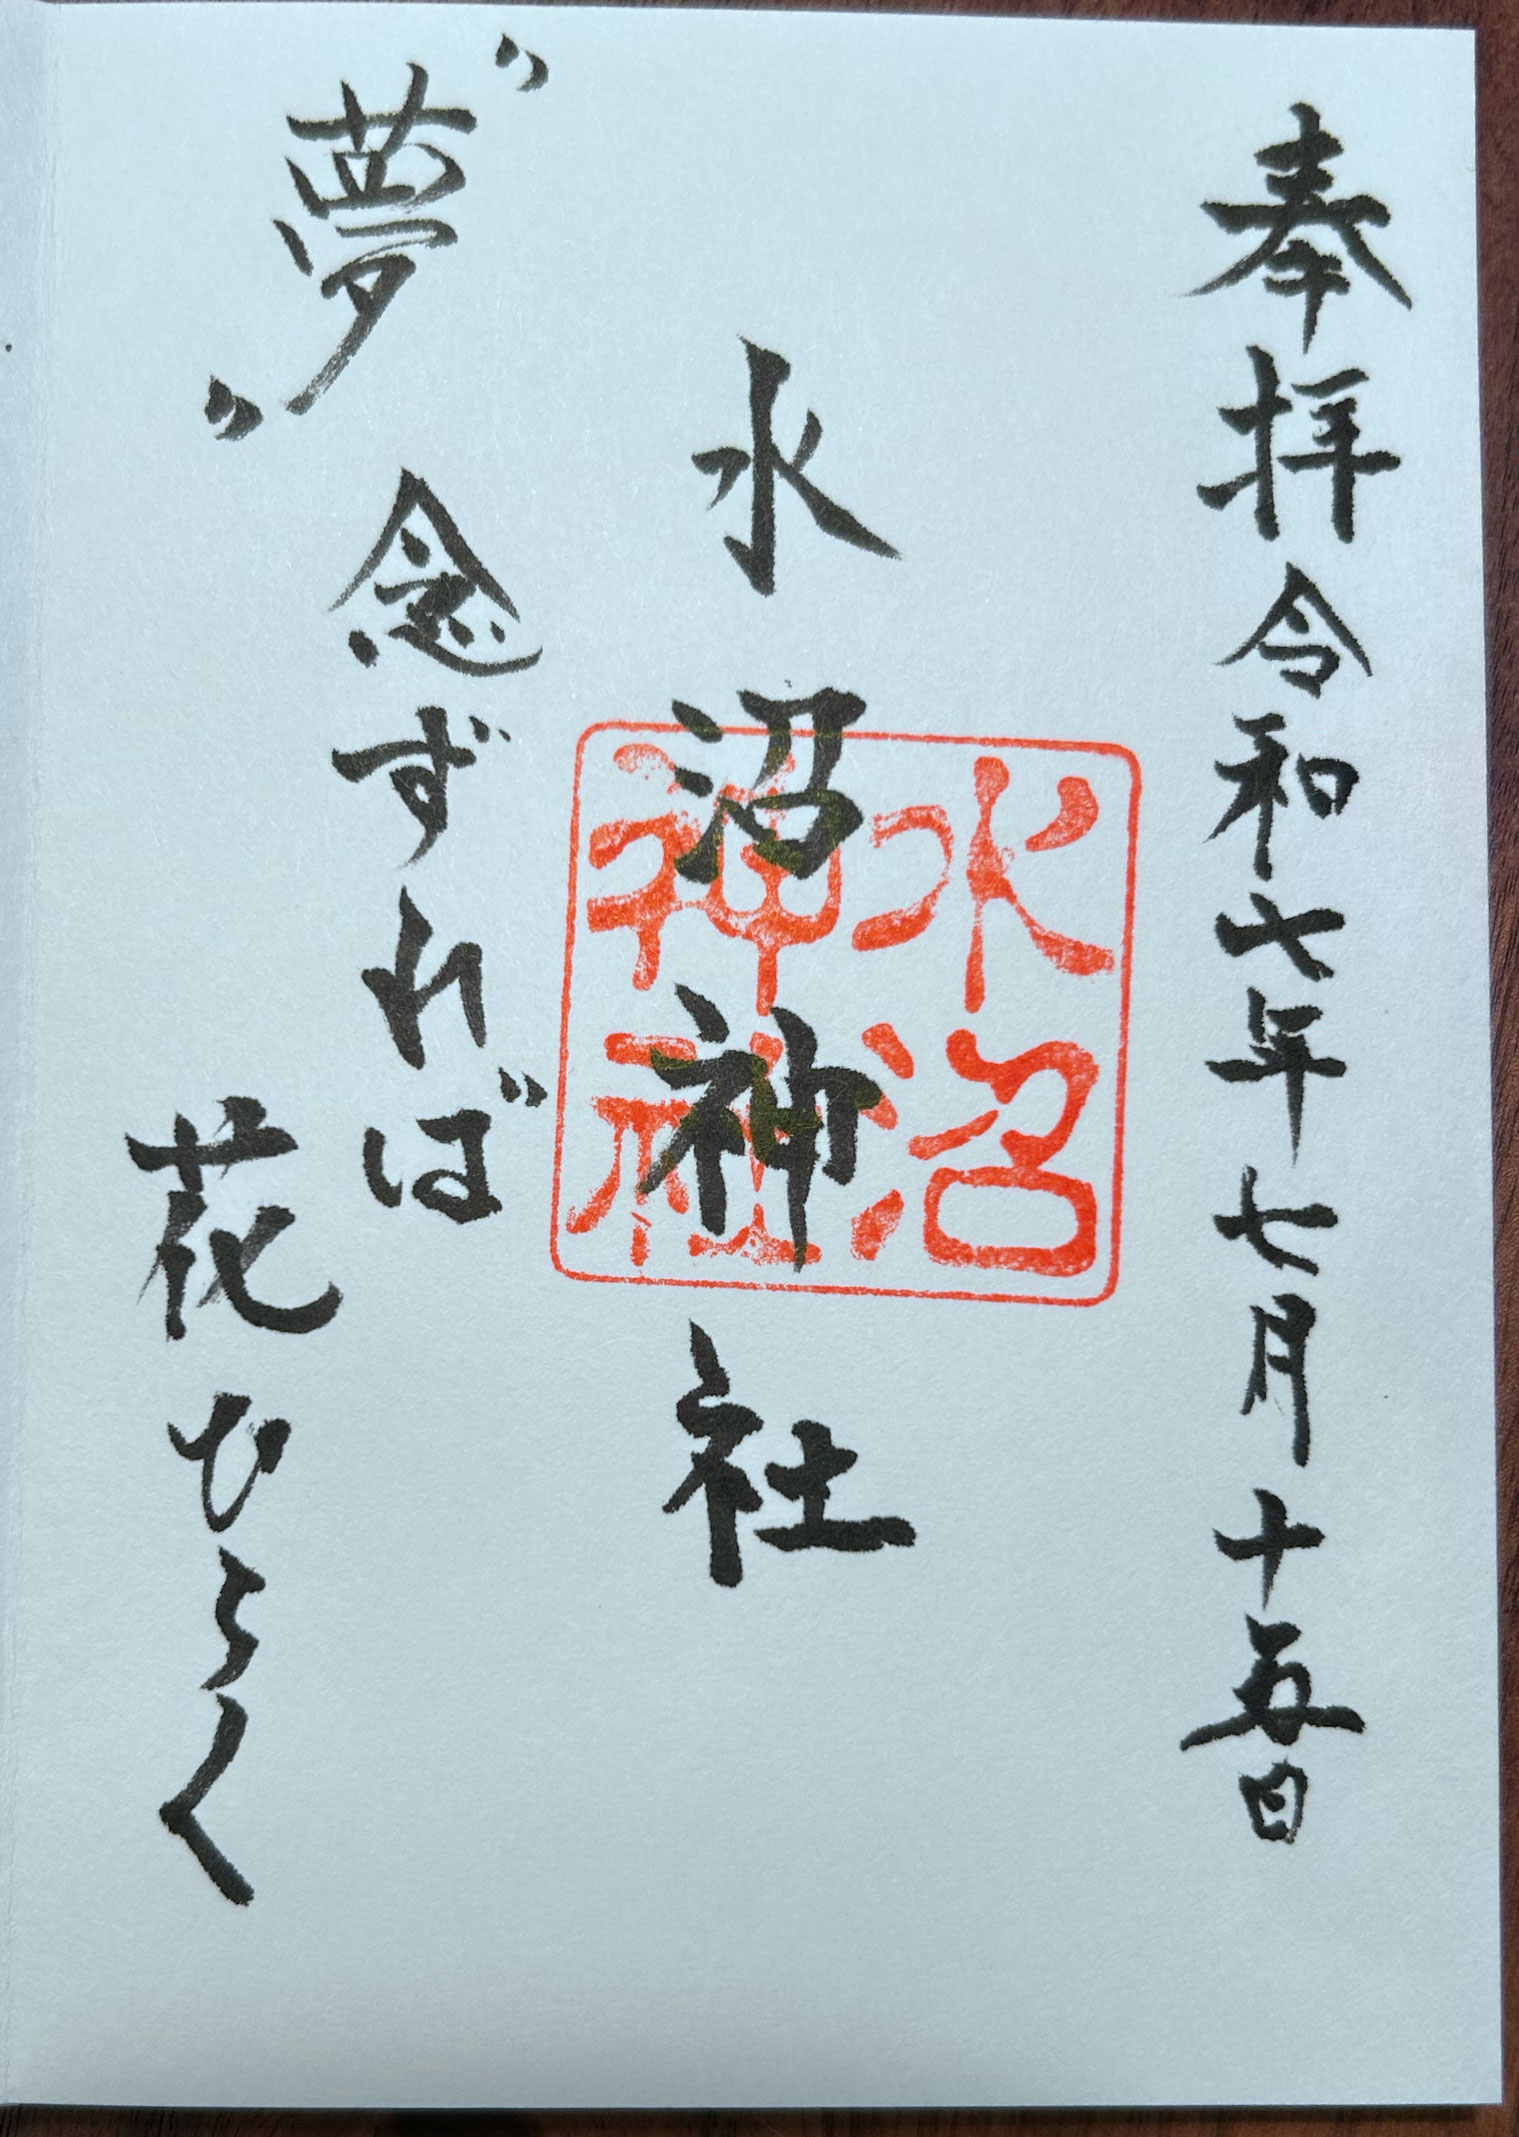 奉拝 令和七年七月十五日
水沼神社
水沼
神社
〝夢〟
念ずれば
花ひらく